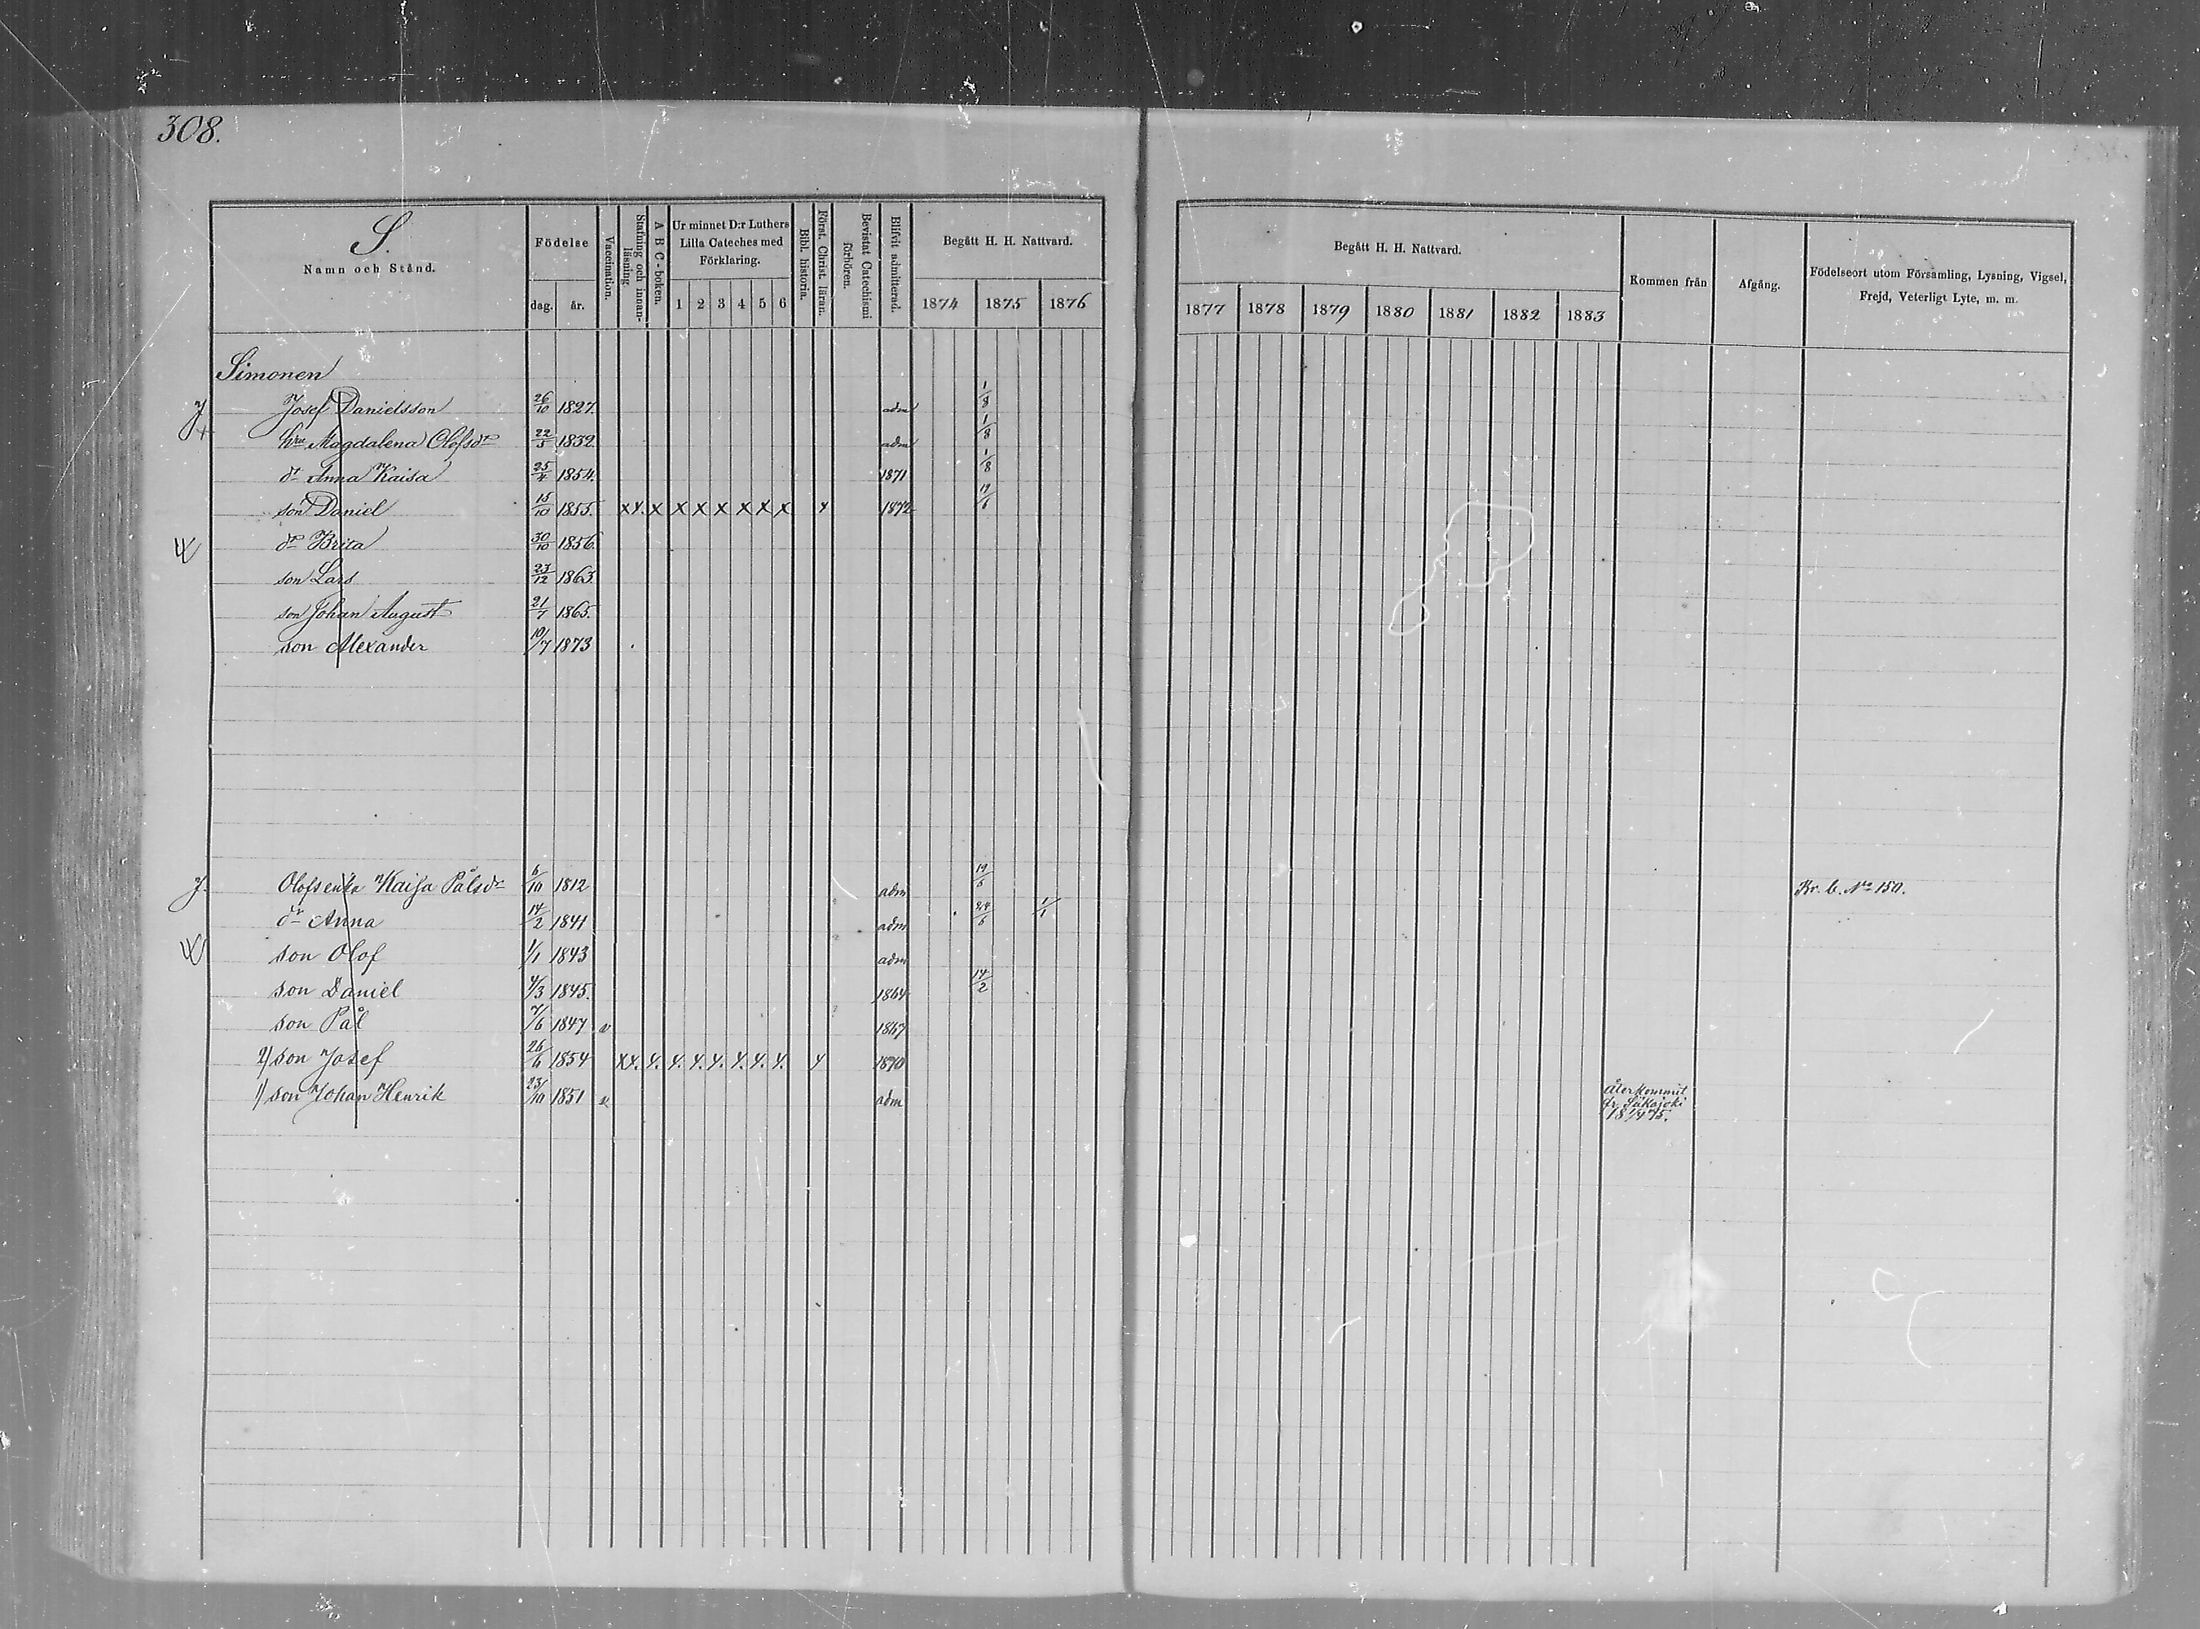 308.
S.
Namn och Stånd.
Födelse
dag. år.
Vaccination.
Stafning och innanläsning.
A B C-boken.
Ur minnet D:r Luthers Lilla Cateches med Förklaring.
1 2 3 4 5 6
Bibl. historia.
Först. Christ. läran.
Bevistat Catechismi förhören.
Blifvit admitterad.
Begått H. H. Nattvard.
1874 1875 1876
Begått H. H. Nattvard.
1877 1878 1879 1880 1881 1882 1883
Kommen från
Afgång.
Födelseort utom Församling, Lysning, Vigsel, Frejd, Veterligt Lyte, m. m.
Simonen
Josef Danielsson 26/10 1827. adm 1/8
hru Magdalena Olofsdr 22/5 1832. adm 1/8
dr Anna Kaisa 25/4 1854. 1871 1/8
son Daniel 15/10 1855. x x. x x x x x x x x 1872 19/6
dr Brita 30/10 1856.
son Lars 23/12 1863.
son Johan August 21/7 1865.
son Alexander 10/7 1873
Olofs enka Kaisa Pålsdr 6/10 1812 adm 19/6 Kr. b. No 150.
dr Anna 14/2 1841 adm 24/6 1/1
son Olof 1/1 1843 adm
son Daniel 4/3 1845. 1864 14/2
son Pål 7/6 1847 v 1867
2) son Josef 26/6 1854 x x. x. x. x. x. x. x. x. x 1870
1) son Johan Henrik 23/10 1851 v. adm återkommit fr. Siikajoki